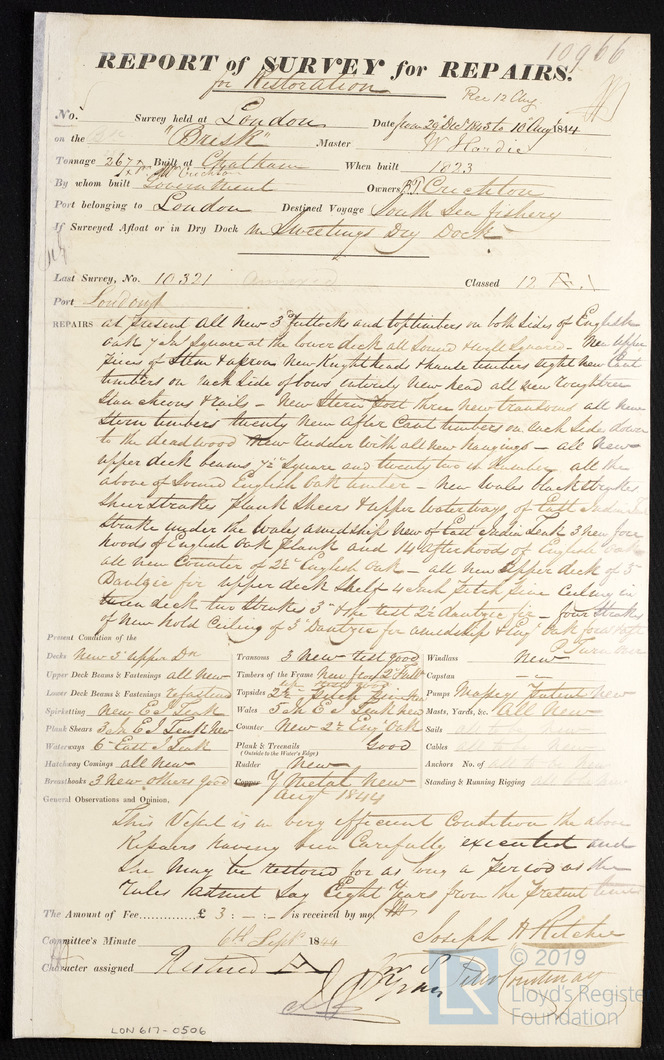 10966
REPORT of SURVEY for REPAIRS.
for Restoration
Rec 12 Aug
No. Survey held at London Date from 29 Decr 1843 to 10 Augt 1844
on the "Brisk" Master W Hardie
Tonnage 267 Built at Chatham When built 1823
By whom built Government Owners Crichton
Port belonging to London Destined Voyage South Sea fishery
If Surveyed Afloat or in Dry Dock in Sweetings Dry Dock
Last Survey, No. 10321 annexed Classed 12 A.1
Port London
REPAIRS at present all New 3d futtocks and toptimbers on both sides of English
oak 7 in Square at the lower deck all sound & well squared. New upper
pieces of Stem & apron New Knightheads & hawse timbers eight new Cant
timbers on each side of bows entirely new head all new roughtree
Stanchions & rails - New Stern post three new transoms all new
Stern timbers twenty new After Cant timbers on each side down
to the deadwood New rudder with all new hangings - all new
upper deck beams 7½ Square and twenty two in Number all the
above of Sound English Oak timber - New Wales black strakes
Sheerstrakes plank Sheers & upper waterways of East India Teak
Strake under the Wales amidships new of East India Teak 3 new fore
hoods of English Oak plank and 14 afterhoods of English Oak
all new Counter of 2½ English Oak - all new Upper deck of 3"
Dantzic fir upper deck Shelf 4 Inch Ceiling in
tween deck two Strakes 3" & the rest 2½ dantzic fir - four Strakes
of New hold Ceiling of 3" Dantzic fir amidship & Eng Oak
Turn over
Present Condition of the
Decks New 3" upper Dk
Upper Deck Beams & Fastenings all new
Lower Deck Beams & Fastenings refastened
Spirketting new E I Teak
Plank Shears 3 in E I Teak new
Waterways 6 in East I Teak
Hatchway Comings all new
Breasthooks 3 new others good
Transoms 3 new rest good
Timbers of the Frame New from 2d futt
Topsides 2½
Wales 5 in E I Teak new
Counter New 2½ Eng Oak
Plank & Treenails Good
(Outside to the Water's Edge)
Rudder New
Copper Y Metal new
Augt 1844
Windlass New
Capstan -
Pumps Masseys Patent new
Masts, Yards, &c. All New
Sails
Cables
Anchors No. of
Standing & Running Rigging
General Observations and Opinion,
This Vessel is in very efficient Condition the above
Repairs having been Carefully executed and
she may be restored for as long a Period as the
rules admit Say Eight Years from the present time
The Amount of Fee............... £ 3 : - : - is received by me,
Joseph H Ritchie
Committee's Minute 6th Sept 1844
Character assigned Restored A
LON 617-0506
LR
© 2019
Lloyd's Register
Foundation